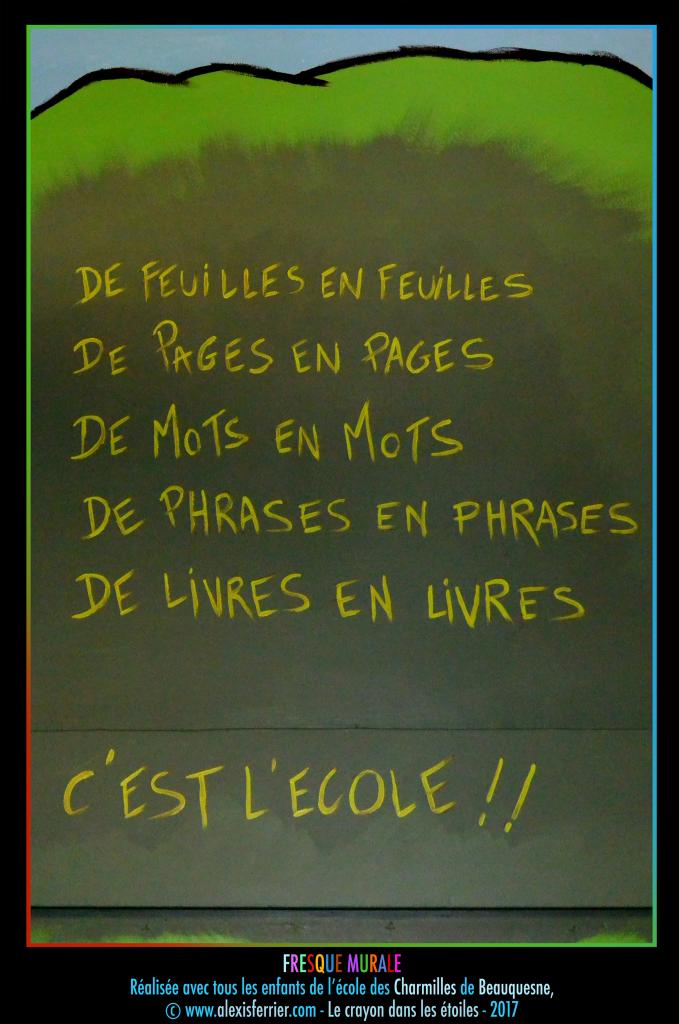 DE FEUILLES EN FEUILLES
DE PAGES EN PAGES
DE MOTS EN MOTS
DE PHRASES EN PHRASES
DE LIVRES EN LIVRES
C'EST L'ECOLE !!
FRESQUE MURALE
Réalisée avec tous les enfants de l'école des Charmilles de Beauquesne,
© www.alexisferrier.com - Le crayon dans les étoiles - 2017